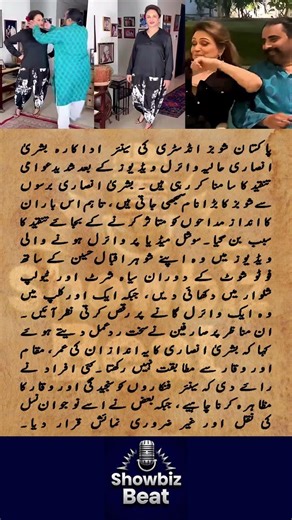 پاکستان شوبز انڈسٹری کی سینئر اداکارہ بشریٰ
انصاری حالیہ وائرل ویڈیوز کے بعد شدید عوامی
تنقید کا سامنا کر رہی ہیں۔ بشریٰ انصاری برسوں
سے شوبز کا بڑا نام سمجھی جاتی ہیں، تاہم اس بار ان
کا انداز مداحوں کو متاثر کرنے کے بجائے تنقید کا
سبب بن گیا۔ سوشل میڈیا پر وائرل ہونے والی
ویڈیوز میں وہ اپنے شوہر اقبال حسین کے ساتھ
فوٹو شوٹ کے دوران سیاہ شرٹ اور ٹیولپ
شلوار میں دکھائی دیں، جبکہ ایک اور کلپ میں
وہ ایک وائرل گانے پر رقص کرتی نظر آئیں۔
ان مناظر پر صارفین نے سخت ردعمل دیتے ہوئے
کہا کہ بشریٰ انصاری کا یہ انداز ان کی عمر، مقام
اور وقار سے مطابقت نہیں رکھتا۔ کئی افراد نے
رائے دی کہ سینئر فنکاروں کو سنجیدگی اور وقار کا
مظاہرہ کرنا چاہیے، جبکہ بعض نے اسے نوجوان نسل
کی نقل اور غیر ضروری نمائش قرار دیا۔
Showbiz
Beat